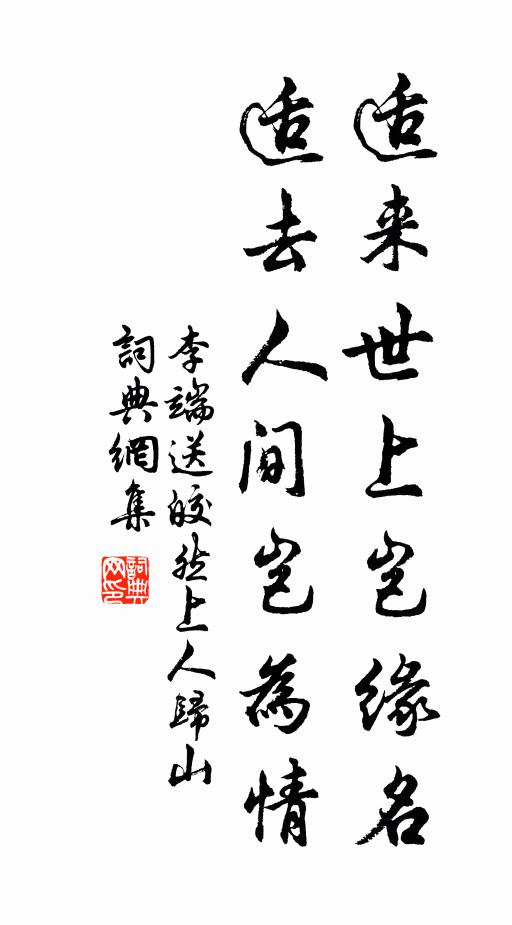 适来世上岂缘名
适去人间岂为情
李端送皎然上人歸山
詞典網集
詞典網印